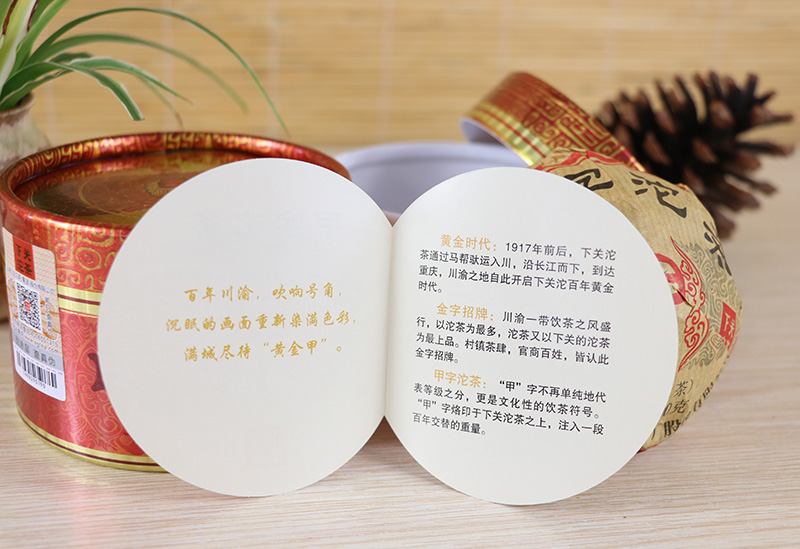 百年川渝,吹响号角,
沉眠的画面重新染满色彩,
满城尽待“黄金甲”。
黄金时代:1917年前后,下关沱
茶通过马帮驮运入川,沿长江而下,到达
重庆,川渝之地自此开启下关沱茶百年黄金
时代。
金字招牌:川渝一带饮茶之风盛
行,以沱茶为最多,沱茶又以下关的沱茶
为最上品。村镇茶肆,官商百姓,皆认此
金字招牌。
甲字沱茶:“甲”字不再单纯地代
表等级之分,更是文化性的饮茶符号。
“甲”字烙印于下关沱茶之上,注入一段
百年交替的重量。
下关
沱茶
沱
茶)